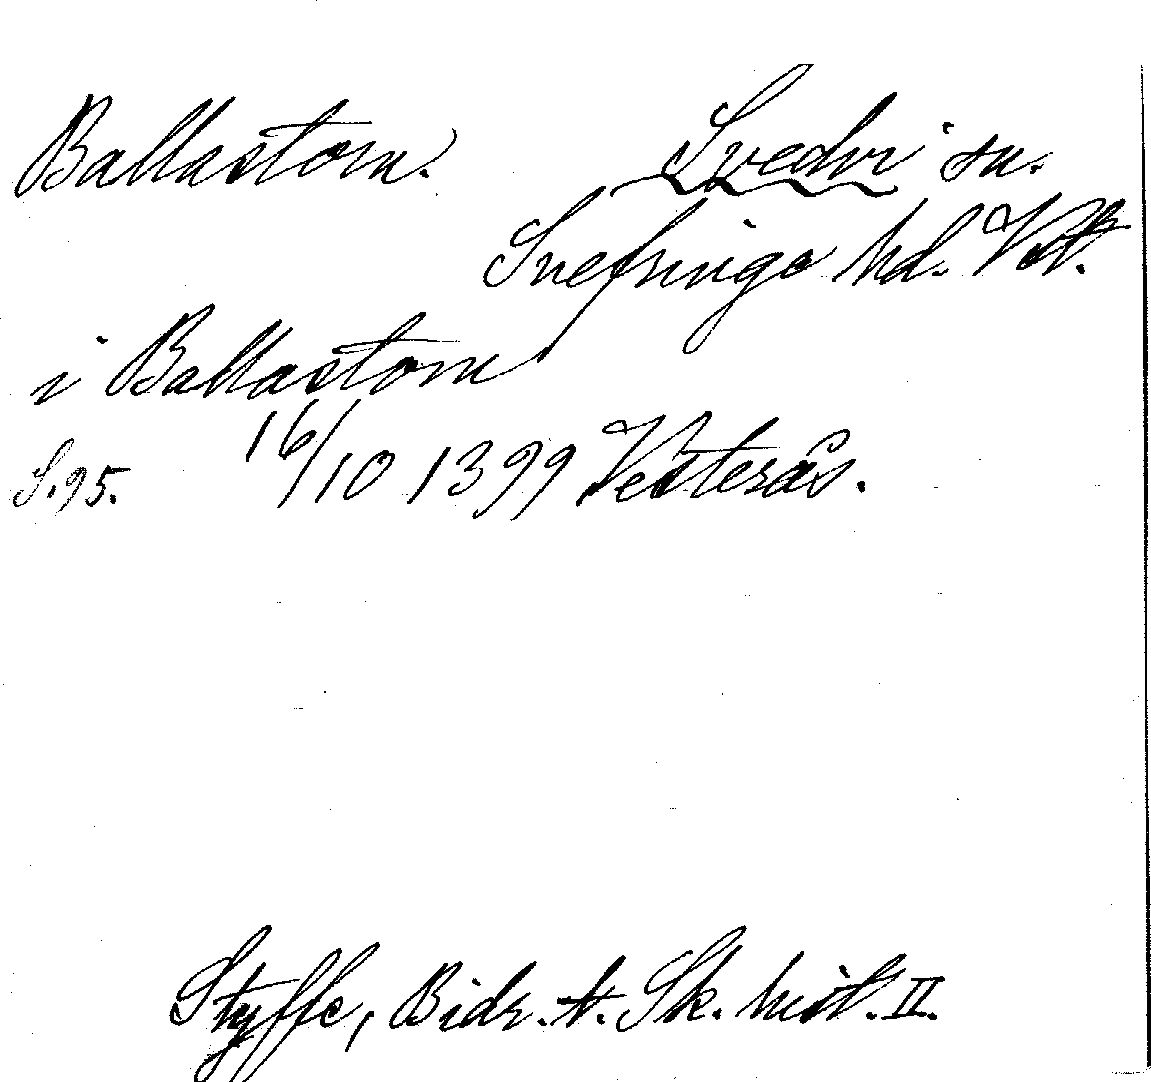 Ballastom. Svedvi sn.
Snefringe hd. Vstm.
i Ballastom
16/10 1399 Vesterås.
S. 95.
Styffe, Bidr. t. Sk. hist. II.